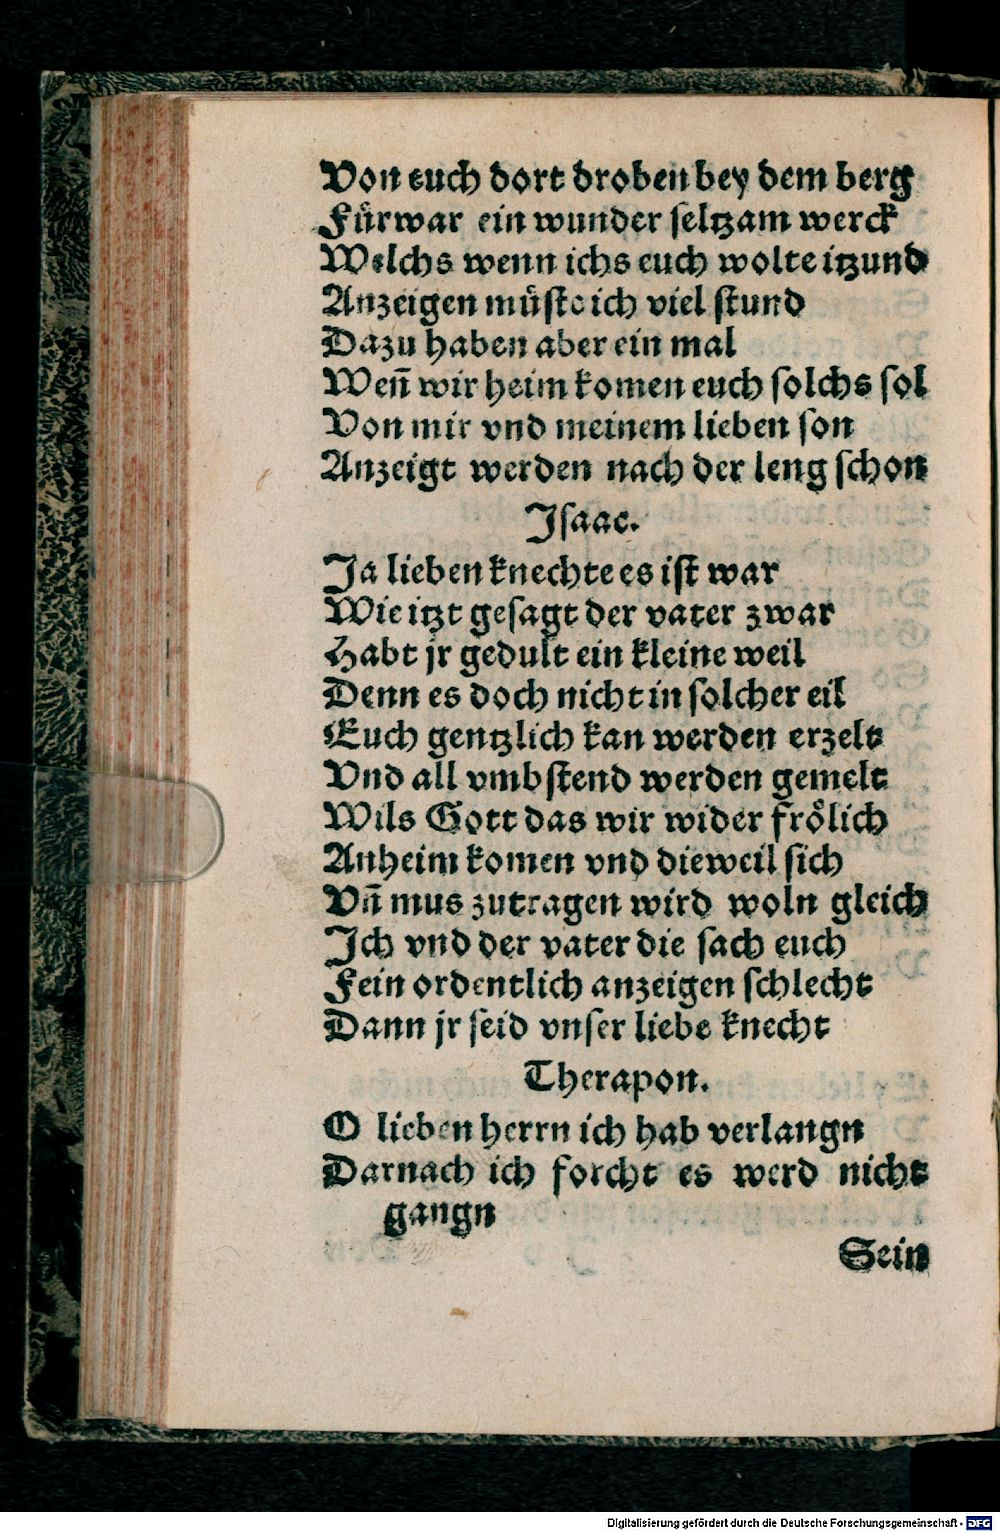 Von euch dort droben bey dem berg
Fürwar ein wunder seltzam werck
Welchs wenn ichs euch wolte itzund
Anzeigen müste ich viel stund
Dazu haben aber ein mal
Weñ wir heim komen euch solchs sol
Von mir vnd meinem lieben son
Anzeigt werden nach der leng schon
Isaac.
Ja lieben knechte es ist war
Wie itzt gesagt der vater zwar
Habt jr gedult ein kleine weil
Denn es doch nicht in solcher eil
Euch gentzlich kan werden erzelt
Vnd all vmbstend werden gemelt
Wils Gott das wir wider frölich
Anheim komen vnd dieweil sich
Vñ mus zutragen wird woln gleich
Ich vnd der vater die sach euch
Fein ordentlich anzeigen schlecht
Dann jr seid vnser liebe knecht
Therapon.
O lieben herrn ich hab verlangn
Darnach ich forcht es werd nicht
gangn
Sein
Digitalisierung gefördert durch die Deutsche Forschungsgemeinschaft - DFG